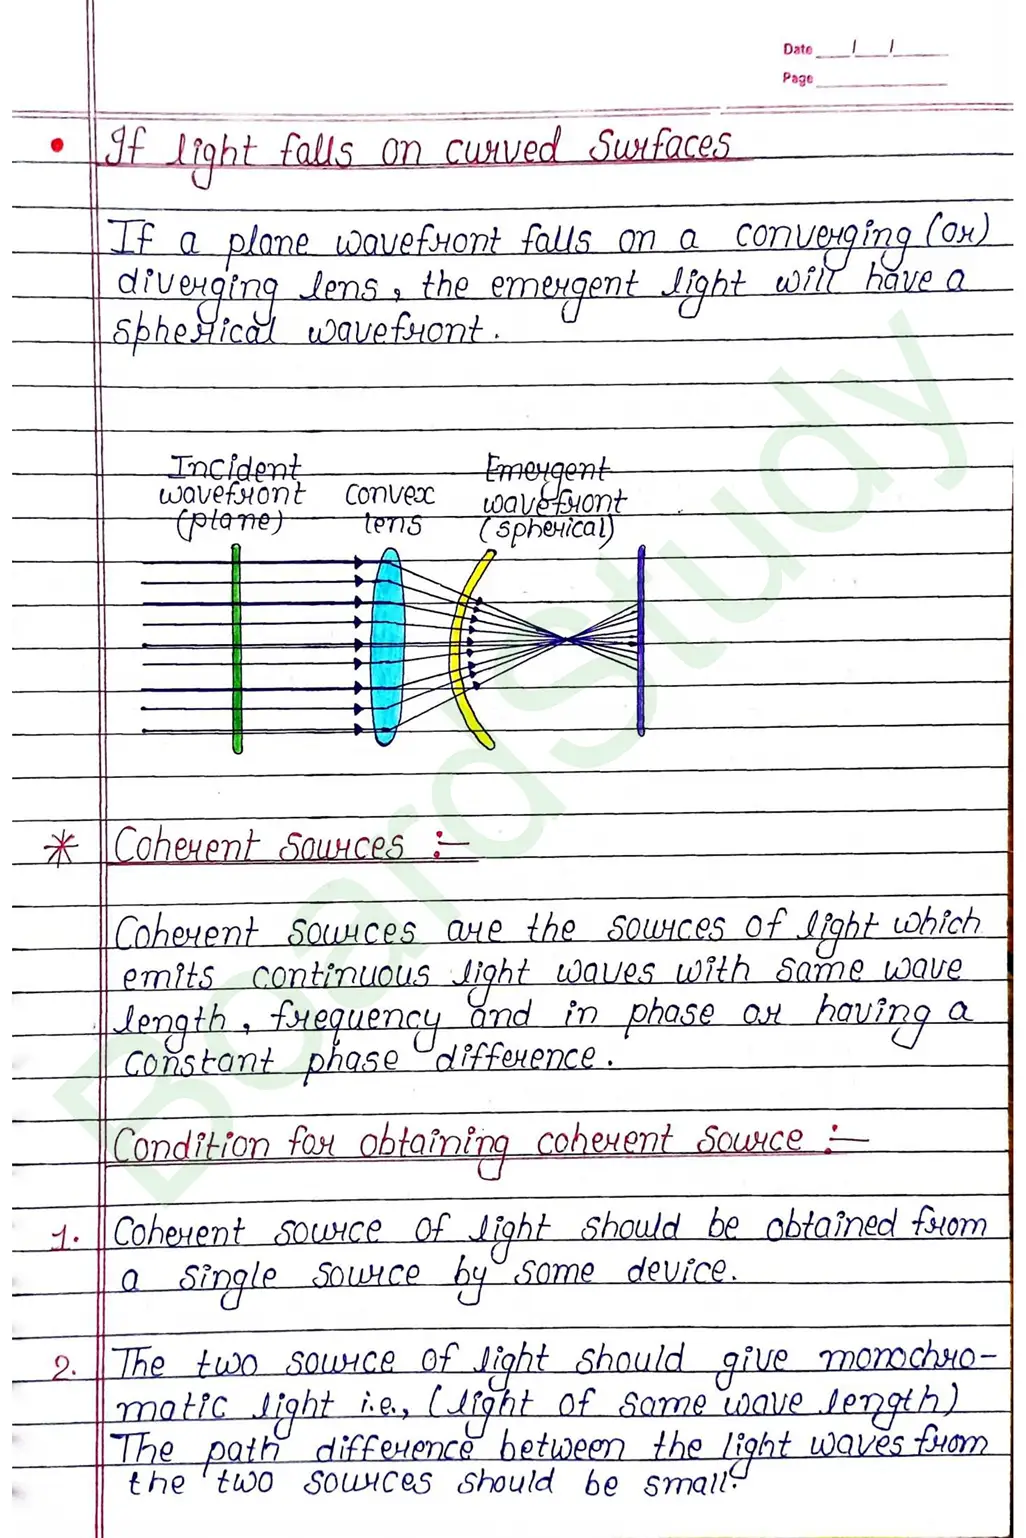 Date / /
Page
• If light falls on curved surfaces
If a plane wavefront falls on a converging (or)
diverging lens, the emergent light will have a
spherical wavefront.
Incident
wavefront
(plane)
convex
lens
Emergent
wavefront
(spherical)
* Coherent sources :-
Coherent sources are the sources of light which
emits continuous light waves with same wave
length, frequency and in phase or having a
constant phase difference.
Condition for obtaining coherent source :-
1. Coherent source of light should be obtained from
a single source by some device.
2. The two source of light should give monochro-
matic light i.e., (light of same wave length)
The path difference between the light waves from
the two sources should be small.
BoardStudy